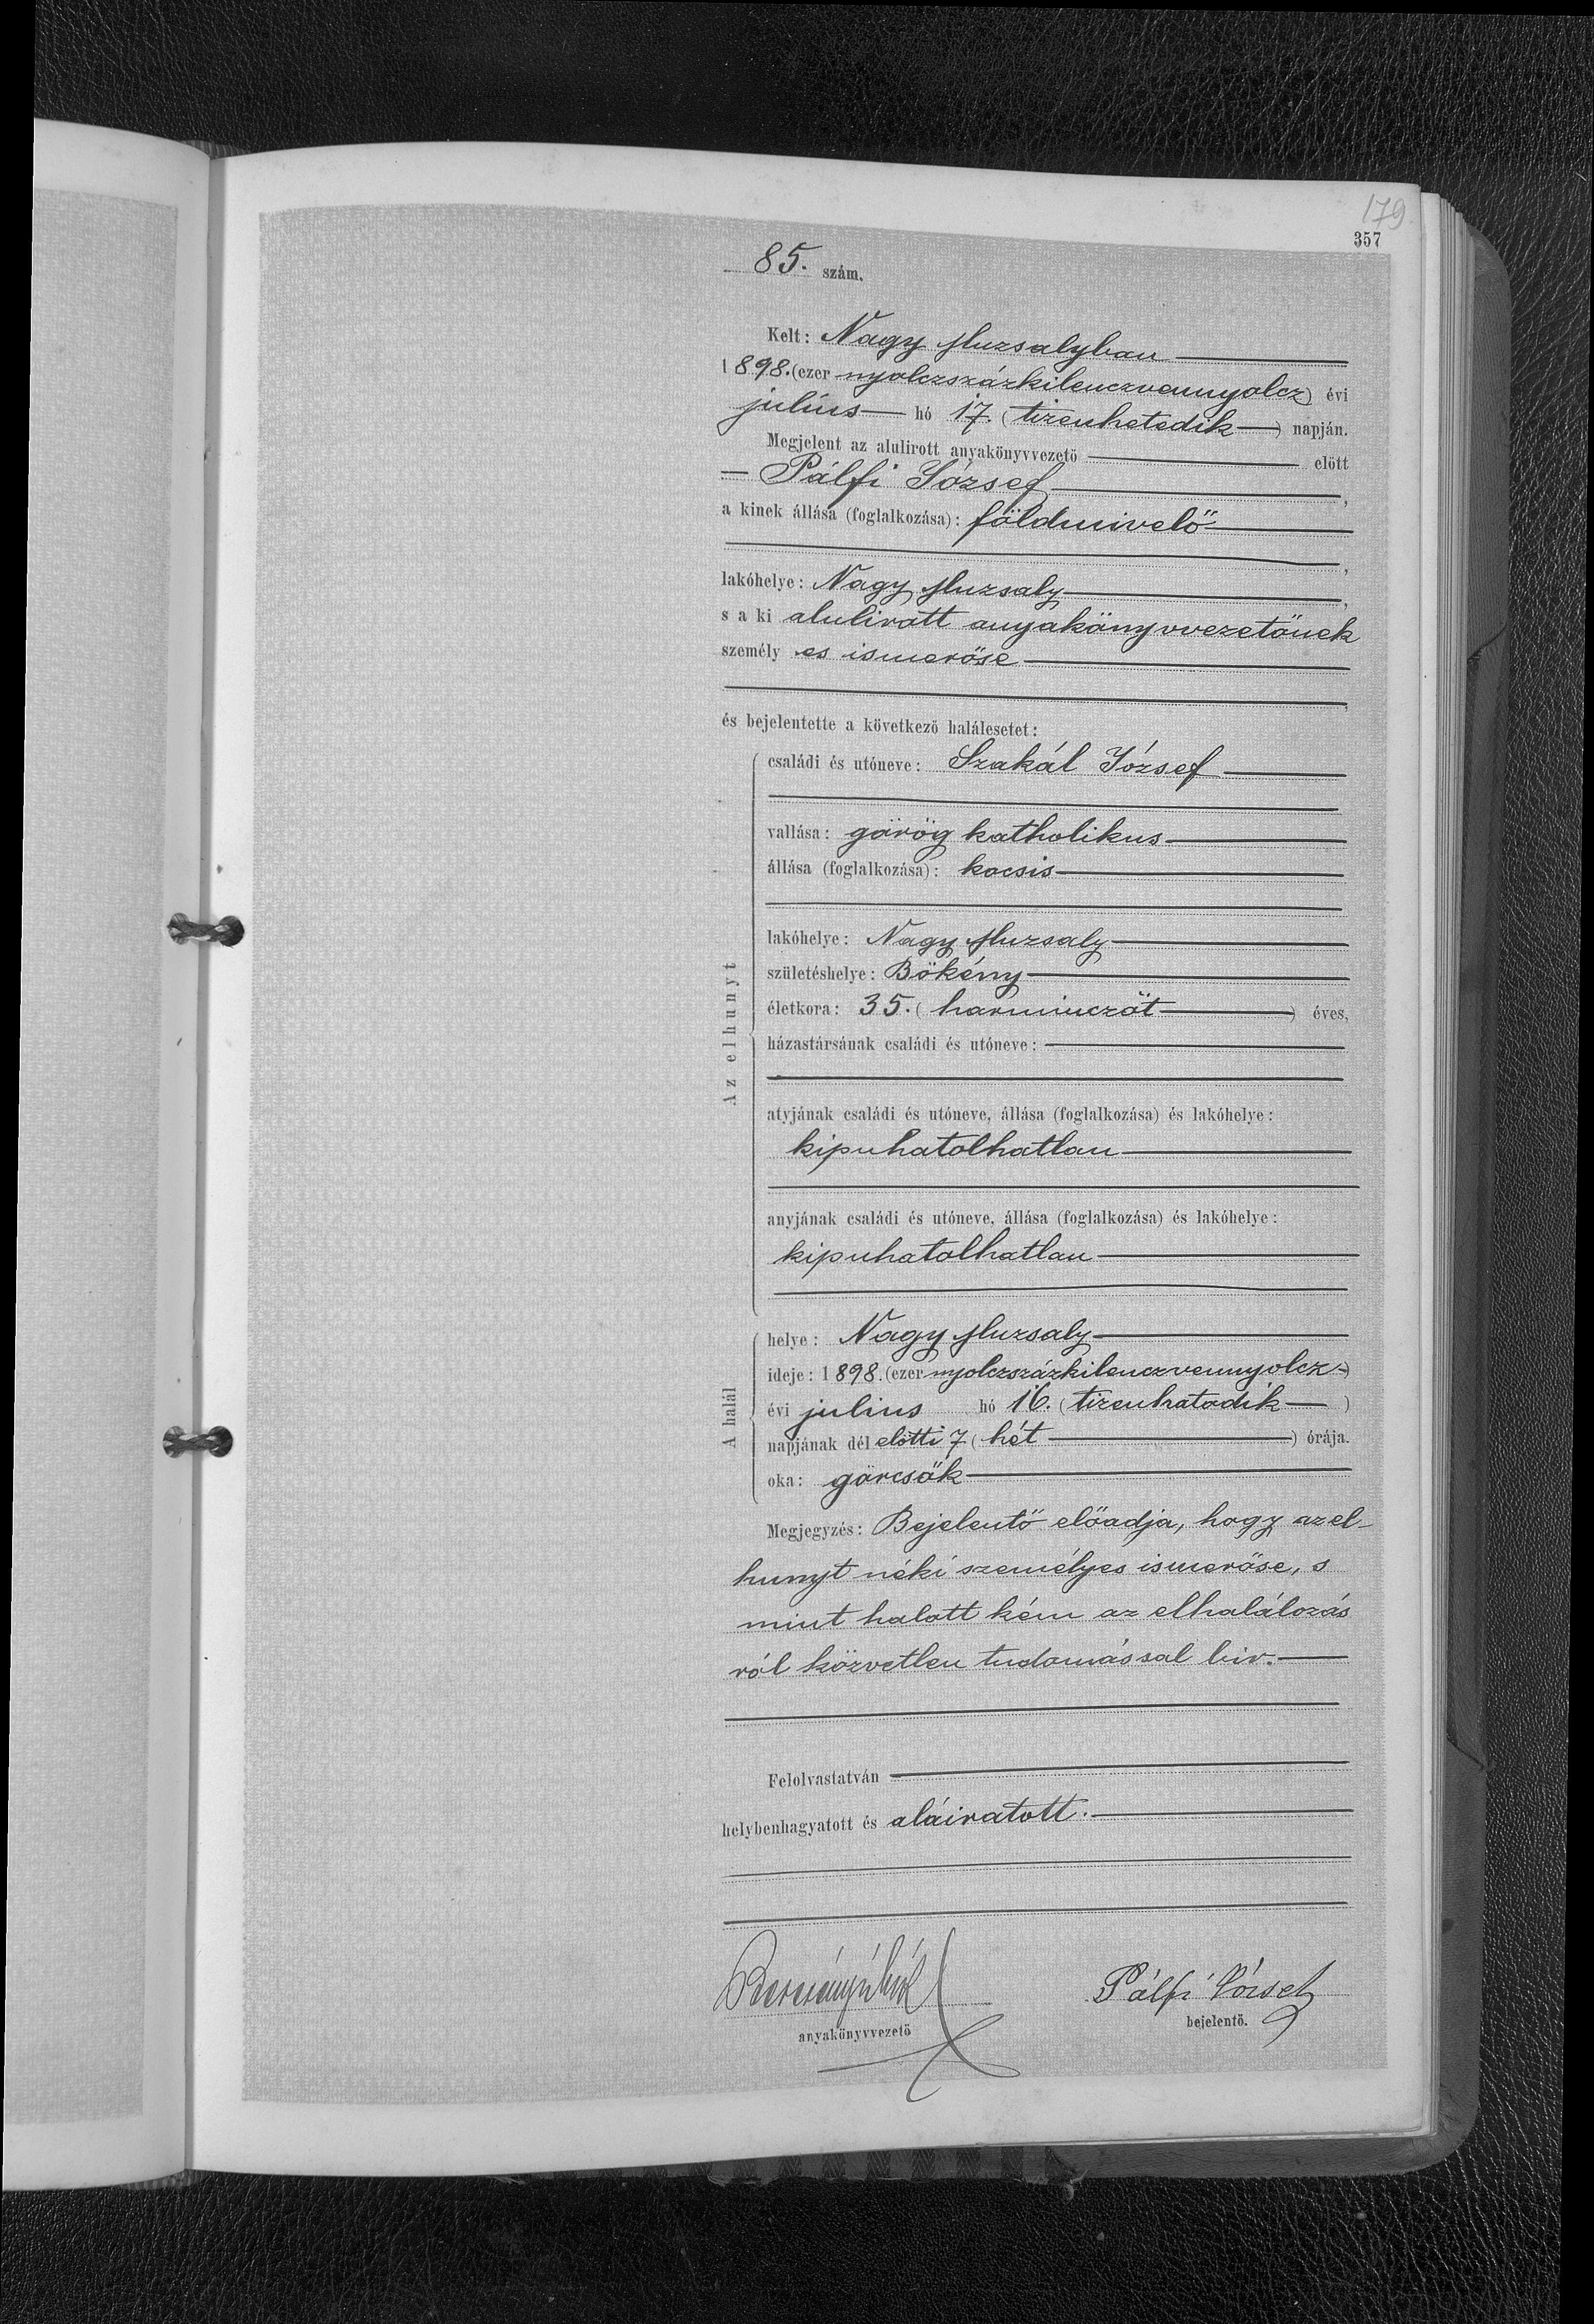 179
357
85. szám.
Kelt: Nagy Muzsalyban
1898. (ezer nyolczszázkilenczvennyolcz) évi
július hó 17. (tizenhetedik) napján.
Megjelent az alulirott anyakönyvvezető előtt
Pálfi József,
a kinek állása (foglalkozása): földmivelő
,
lakóhelye: Nagy Muzsaly,
s a ki alulirott anyakönyvvezetőnek
személy es ismerőse
,
és bejelentette a következő halálesetet:
Az elhunyt
családi és utóneve: Szakál József
vallása: görög katholikus
állása (foglalkozása): kocsis
lakóhelye: Nagy Muzsaly
születéshelye: Bökény
életkora: 35. (harminczöt) éves,
házastársának családi és utóneve:
atyjának családi és utóneve, állása (foglalkozása) és lakóhelye:
kipuhatolhatlan
anyjának családi és utóneve, állása (foglalkozása) és lakóhelye:
kipuhatolhatlan
A halál
helye: Nagy Muzsaly
ideje: 1898. (ezer nyolczszázkilenczvennyolcz)
évi julius hó 16. (tizenhatodik)
napjának dél előtti 7 (hét) órája.
oka: görcsök
Megjegyzés: Bejelentő előadja, hogy az el-
hunyt néki személyes ismerőse, s
mint halott kém az elhalálozás
ról közvetlen tudomással bir.
Felolvastatván
helybenhagyatott és aláiratott.
Pálfi József
anyakönyvvezető
bejelentő.